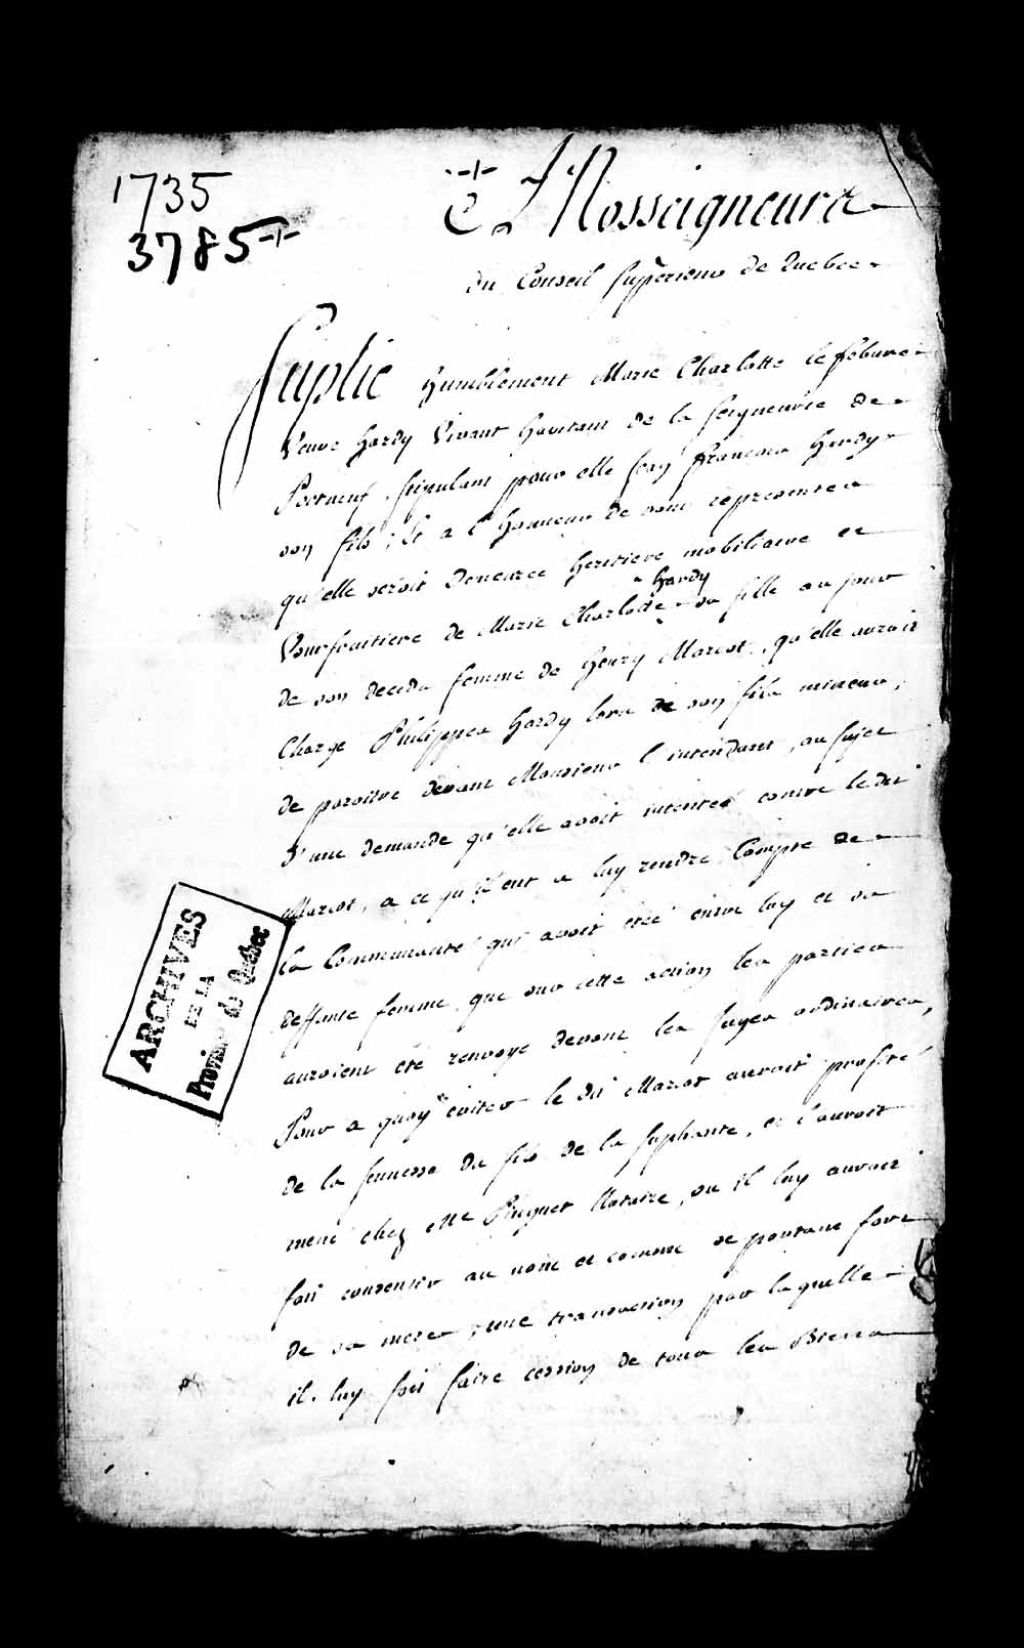 1735
3785
A Nosseigneurs
du Conseil Superieur de Quebec
Suplie humblement Marie Charlotte lefebvre
Veuve hardy Vivant havitant de la seigneurie de
Portneuf, stipulant pour elle françois hardy
son fils; Et a l'honneur de vous representer
qu'elle seroit demeuree heritiere mobiliaire et
hardy
de Marie Charlotte sa fille au jour
de son deceds femme de henry Marcot, qu'elle auroit
Charge Philippes hardy lors de son fils mineur,
de paroitre devant Monsieur l'intendant, au sujet
d'une demande qu'elle avoit intentée contre ledit
Marcot, a ce qu'il eut a luy rendre Compte de
la Communauté qui avoit étée entre luy et sa
deffunte femme, que sur cette action les parties
auroient été renvoye devant les juges ordinaires,
Pour a quoy eviter le dit Marcot auroit profité
de la jeunesse du fils de la supliante, et l'auroit
mené chez Me Piuguet Notaire, ou il luy auroit
fait consentir au nom et comme se portant fort
de sa mere, une transaction par laquelle
il luy fait faire cession de tous les Biens
ARCHIVES
DE LA
Province de Québec